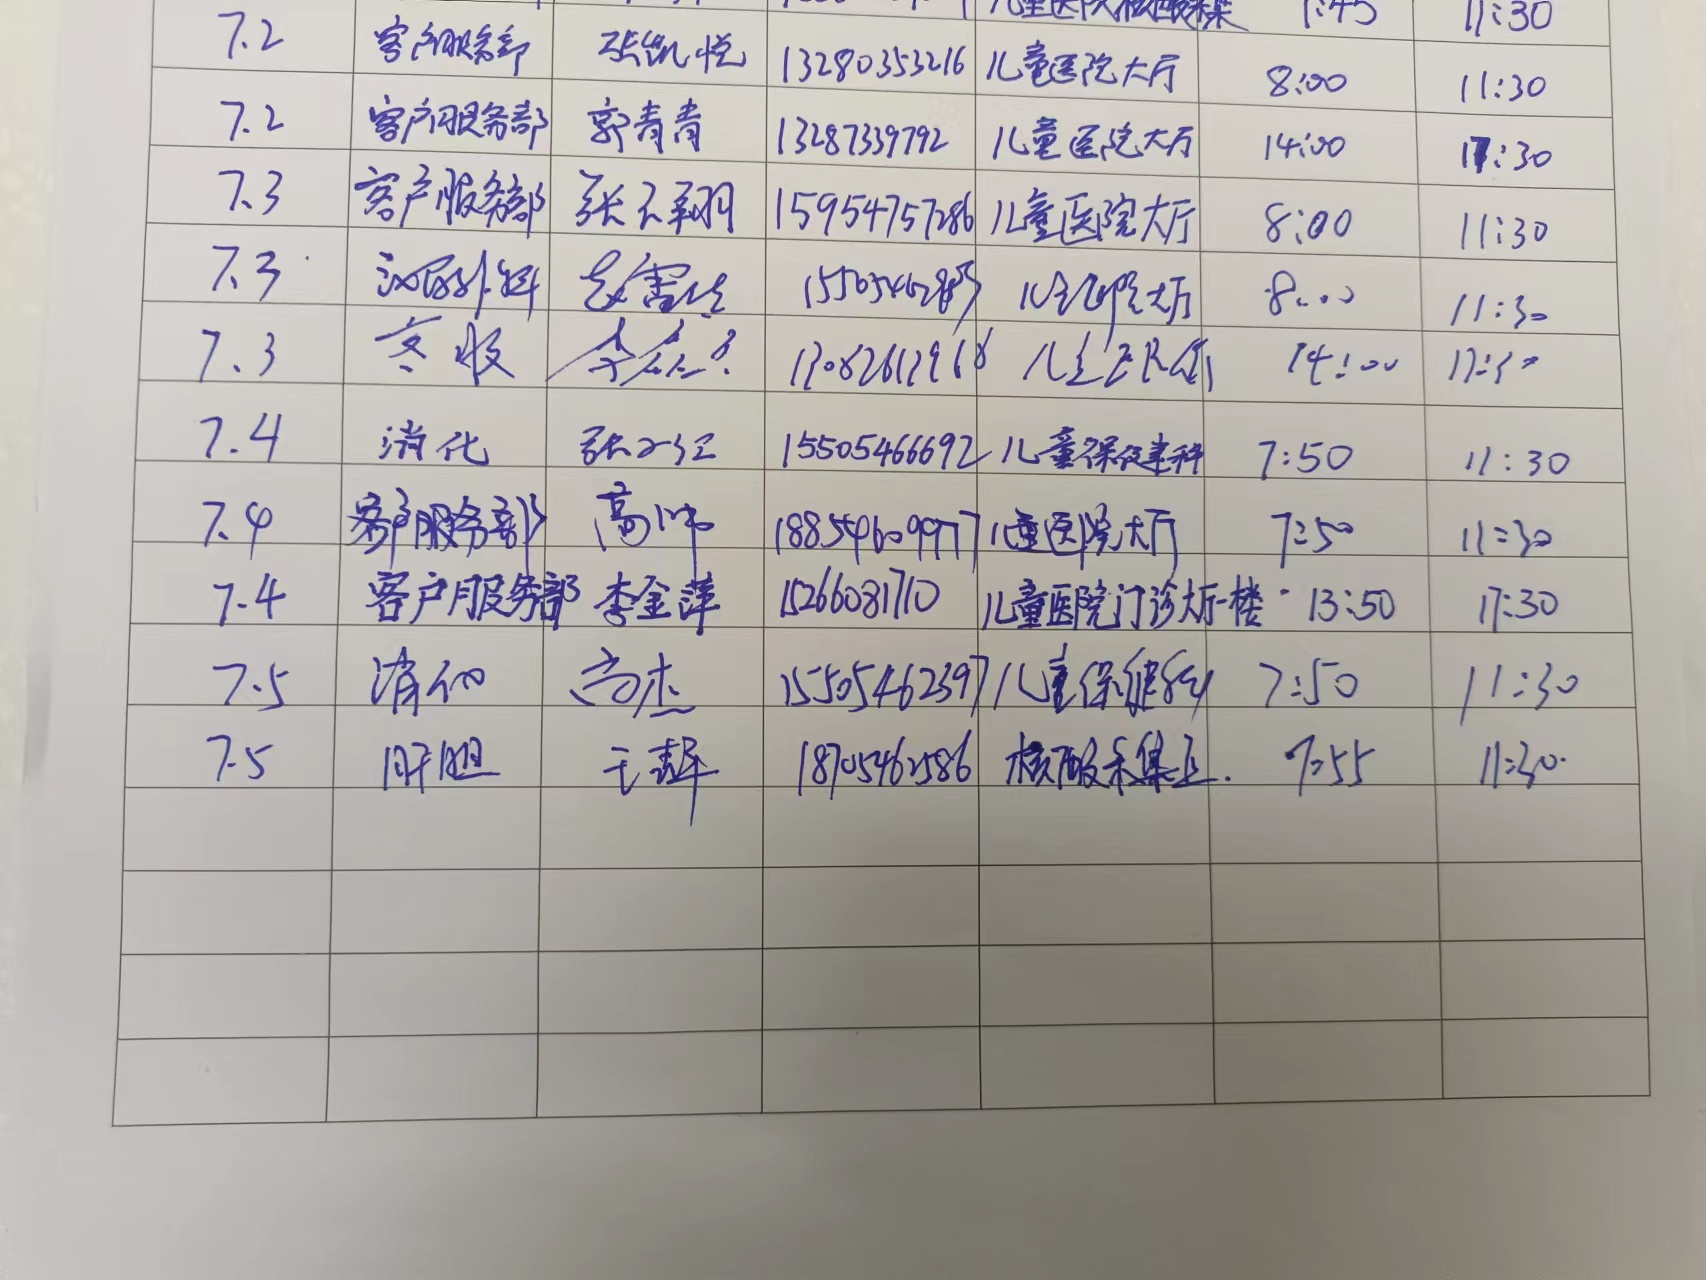 儿童医院核酸采集 7:45 11:30
7.2 客户服务部 张凯悦 13280353216 儿童医院大厅 8:00 11:30
7.2 客户服务部 郭青青 13287339792 儿童医院大厅 14:00 17:30
7.3 客户服务部 张天翔 15954757286 儿童医院大厅 8:00 11:30
7.3 泌尿外科 儿童医院大厅 8:00 11:30
7.3 14:00 17:30
7.4 消化 张文江 15505466692 儿童保健科 7:50 11:30
7.4 客户服务部 高帅 18854609977 儿童医院大厅 7:50 11:30
7.4 客户服务部 李金萍 15266081710 儿童医院门诊大厅一楼 13:50 17:30
7.5 消化 高杰 15505462397 儿童保健科 7:50 11:30
7.5 肝胆 18705462586 核酸采集点. 7:55 11:30